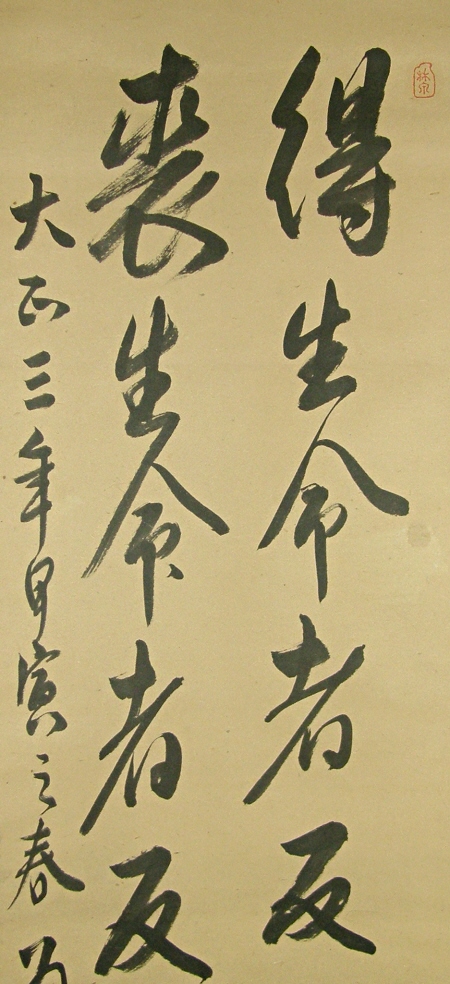 得生命者反
喪生命者反
大正三年甲寅之春為